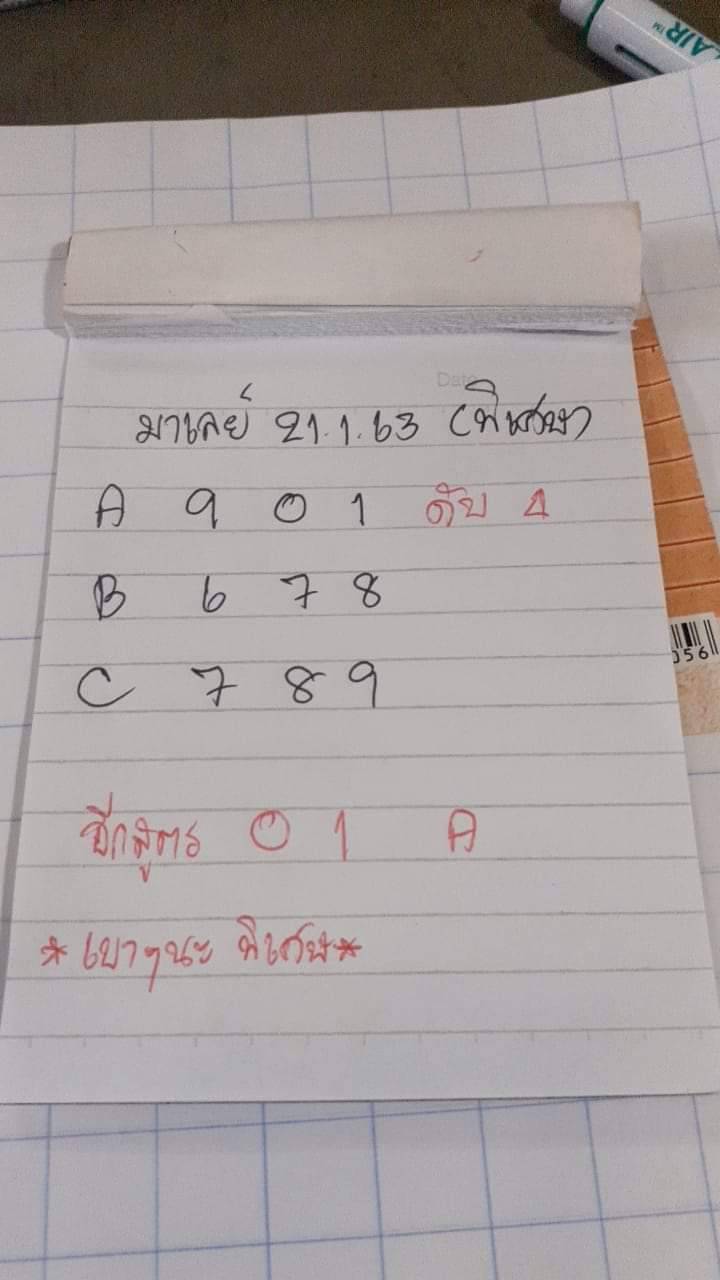 LAIR™
Date
มาเลย์ 21.1.63 (พิเศษ)
A 9 0 1 ดับ 4
B 6 7 8
C 7 8 9
056
อีกสูตร 0 1 A
*เบาๆนะ พิเศษ*